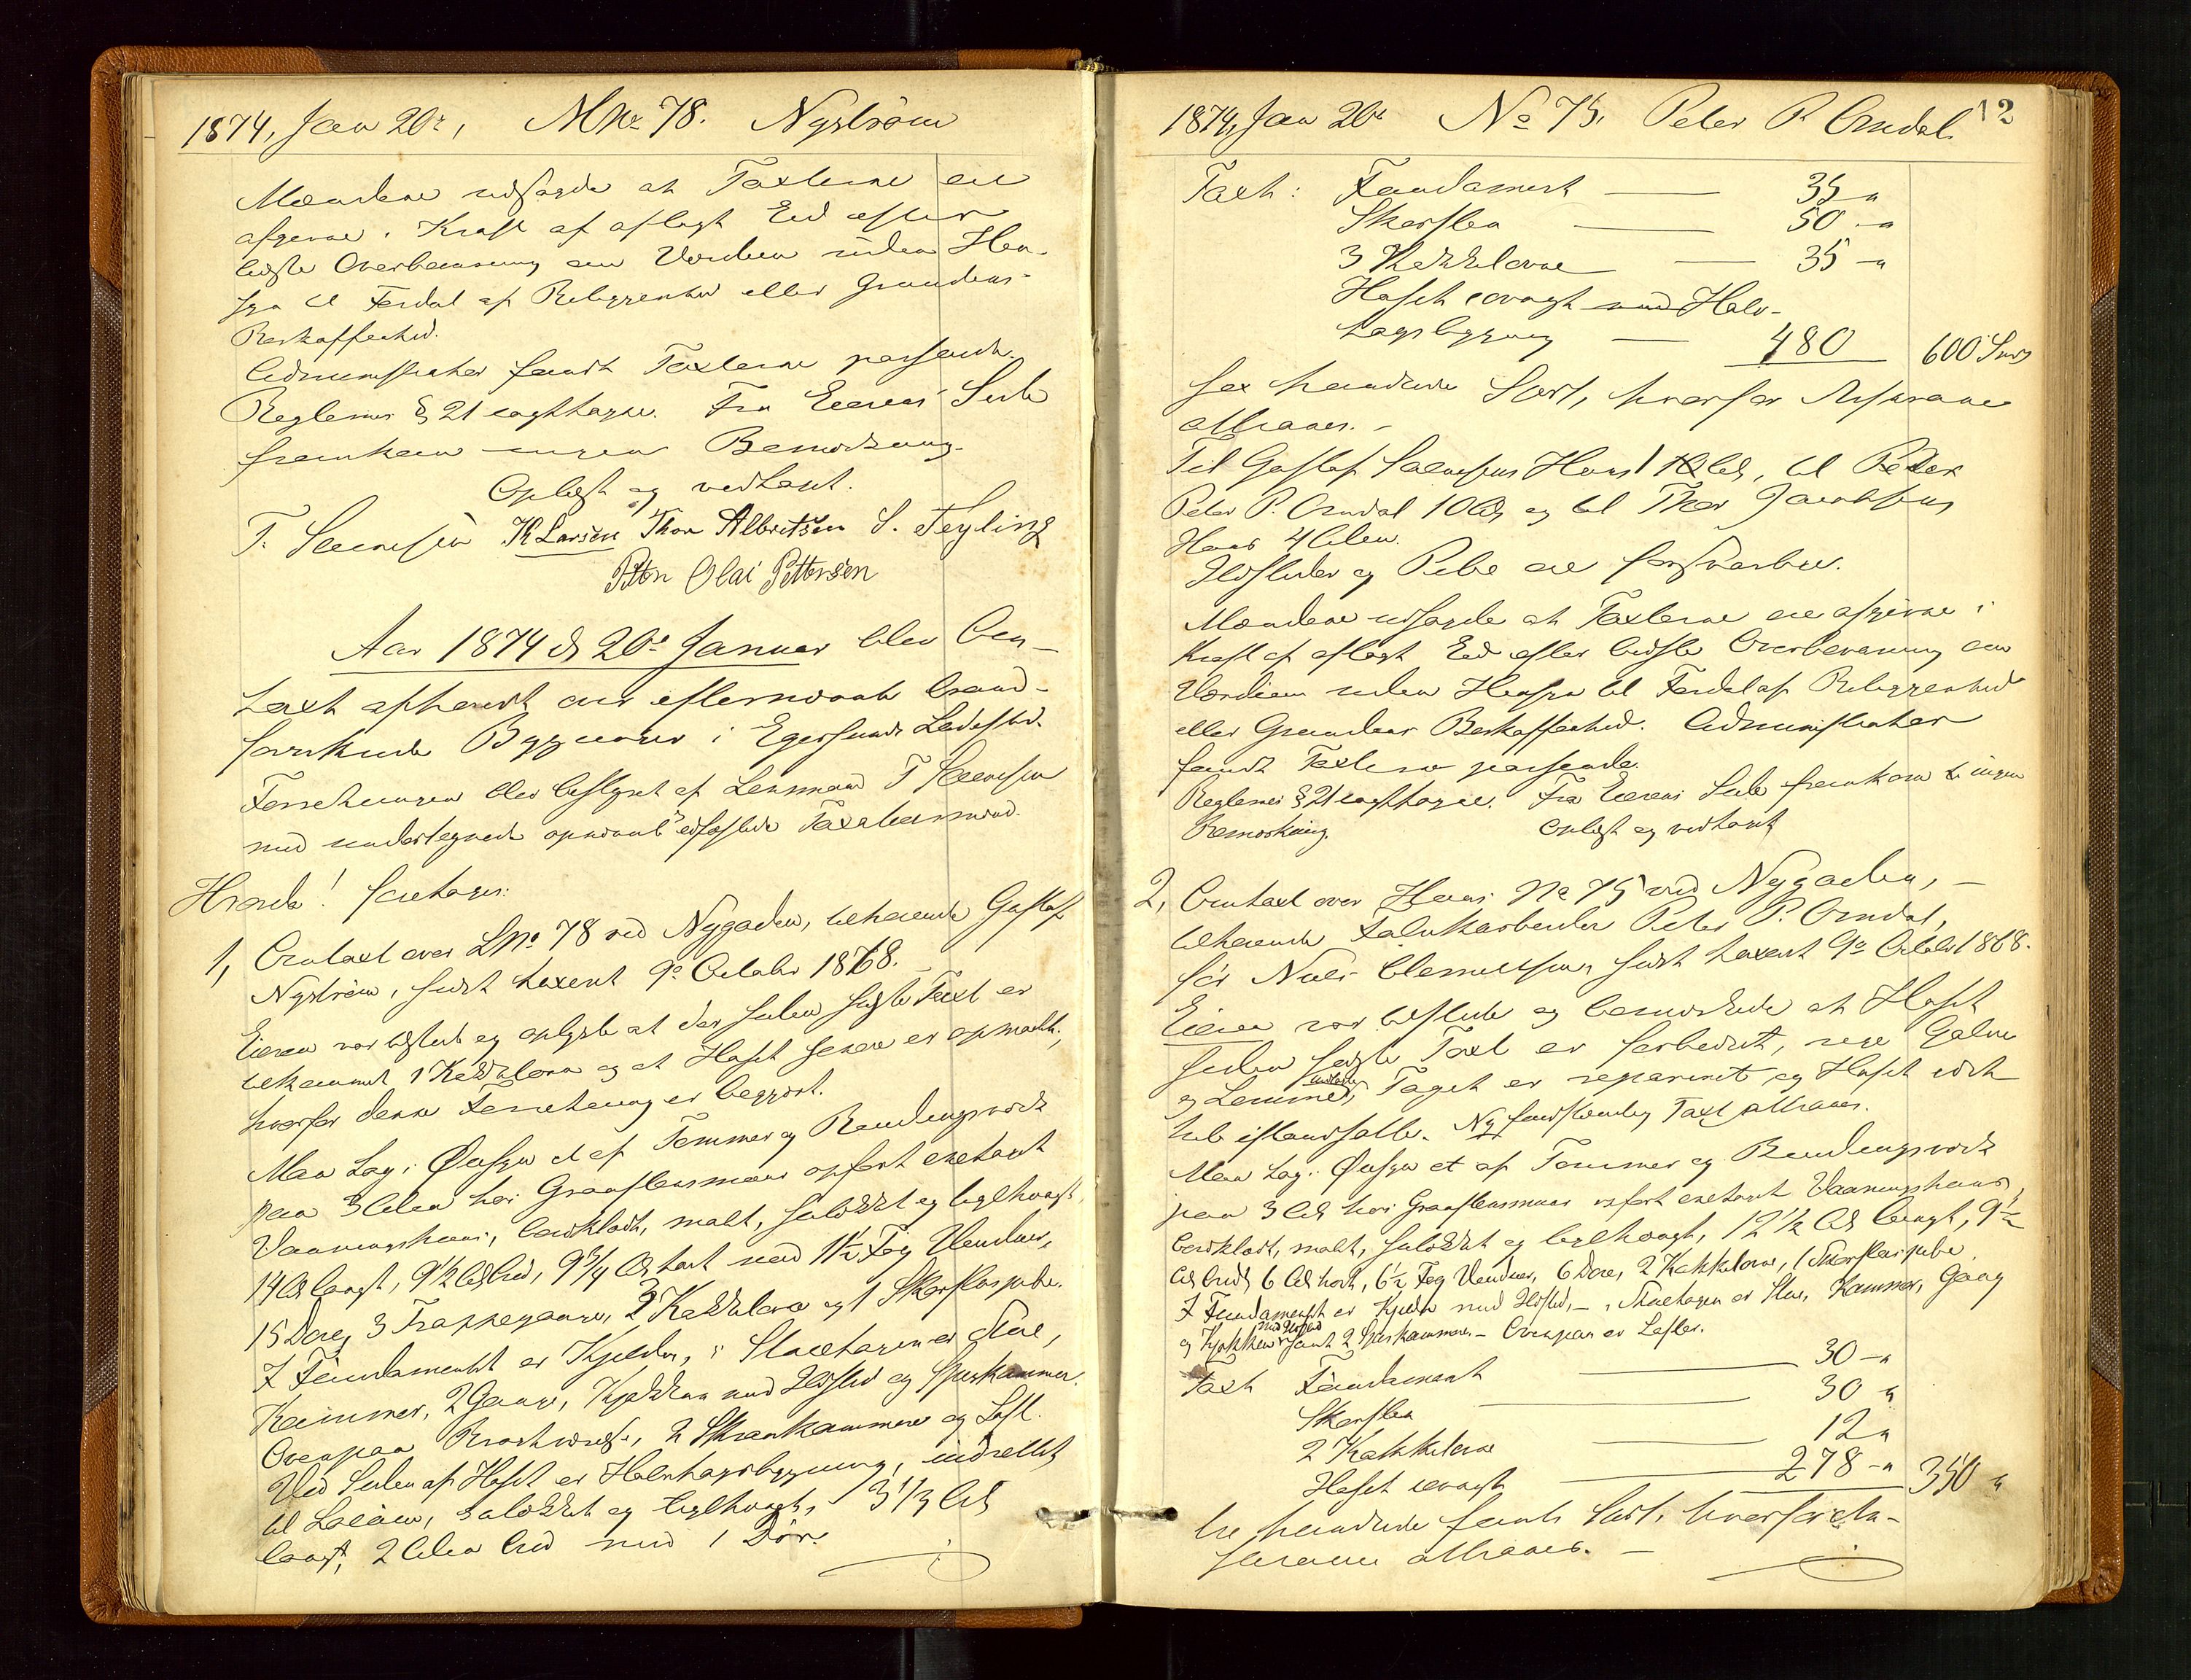 1874, Jan 20de, MNo 78. Nystrøm
Mændene udsagde at Taxterne ere
afgivne i Kraft af aflagt Eed efter
bedste Overbevisning om Værdien uden Hen-
syn til Fordel af Beliggenhed eller Grundens
Beskaffenhed.
Administrator fandt Taxterne passende.
Reglernes § 21 iagttagne. Fra Eierens Side
fremkom ingen Bemærkning.
Oplæst og vedtaget.
T. Svendsen K Larsen Thor Albretsen S. Feyling
Petter Olai Pettersen
Aar 1874 d 20de Januar blev Om-
taxt afholdt over efternævnte brand-
forsikrede Bygninger i Egersunds Ladested.
Forretningen blev bestyret af Lensmand T Svendsen
med undertegnede opnævnte edfæstede Taxationsmænd.
Hvorda! foretages:
1, Omtaxt over LNo 78 ved Nygaden, tilhørende Gustaf
Nystrøm, sidst taxeret 9de Octobr 1868.
Eieren var tilstede og oplyste at der siden sidste Taxt er
tilkommet 1 Kakkelovn og at Huset senere er opmalt,
hvorfor denne Forretning er begjært.
Man tog i Øiesyn et af Tømmer og Bindingsværk
paa 3 Alen høi Graastensmuur opført eneetages
Vaaningshuus, bordklædt, malt, sulokket og teglhængt,
14 Al langt, 9 1/2 Al bred, 9 3/4 Al høit med 11 1/2 Fag Vinduer,
15 Døre, 3 Trappegange, 3 Kakkelovne og 1 Skorstenspibe.
I Fundamentet er Kjelder, i Stueetagen er Stue,
Kammer, 2 Gange, Kjøkken med Ildsted og Spiskammer.
Ovenpaa Qvistværelse, 2 Skraakammere og Loft.
Ved Siden af Huset er Halvtagsbygning, indrettet
til Locum, sulokket og teglhængt, 3 1/3 Al
langt, 2 Alen bred med 1 Dør.
1874, Jan 20de No 75. Peter P. Omdal 12
Taxt: Fundament — 35 "
Skorsten — 50 - "
3 Kakkelovne — 35 - "
Huset iøvrigt med Halv-
tagsbygning — 480 600 Spd
sex hundrede Spd, hvorfor Assurance
attraaes. -
Til Gustaf Svendsens Huus 10 Al, til Peder
Peter P. Omdal 10 Al og til Thor Jacobsens
Huus 4 Alen.
Ildsteder og Pibe ere forsvarlige.
Mændene udsagde at Taxterne ere afgivne i
Kraft af aflagt Eed efter bedste Overbevisning om
Værdien uden Hensyn til Fordel af Beliggenhed
eller Grundens Beskaffenhed. Administrator
fandt Taxterne passende.
Reglernes § 21 iagttagne. Fra Eierens Side fremkom ingen
Bemærkning. Oplæst og vedtaget
2, Omtaxt over Huus No 75 ved Nygaden, -
tilhørende Fabrikarbeider Peter P. Omdal,
før Niels Clemetsen, sidst taxeret 9de Octobr 1868.
Eieren var tilstede og bemærkede at Huset
siden sidste Taxt er forbedret, nye Gulve
og Lemmer, Taget er repareret og Huset idet
hele istandsatte. Ny fuldstændig Taxt attraaes.
Man tog i Øiesyn et af Tømmer og Bindingsværk
paa 3 Al høi Graastensmuur opført eneetages Vaaningshuus,
bordklædt, malt, sulokket og teglhængt, 12 1/2 Al langt, 9 1/2
Al bredt, 6 Al høit, 6 1/2 Fag Vinduer, 6 Døre, 2 Kakkelovne, 1 Skorstenspibe.
I Fundamentet er Kjelder med Ildsted, - i Stueetagen er Stue, Kammer, Gang
og Kjøkken med Ildsted samt 2 Spiskammere - Ovenpaa er Lofter.
Taxt Fundament — 30 - "
Skorsten — 30 "
2 Kakkelovne — 12 "
Huset iøvrigt — 278 - " 350 "
tre hundrede femti Spd, hvorfor As-
surance attraaes. -